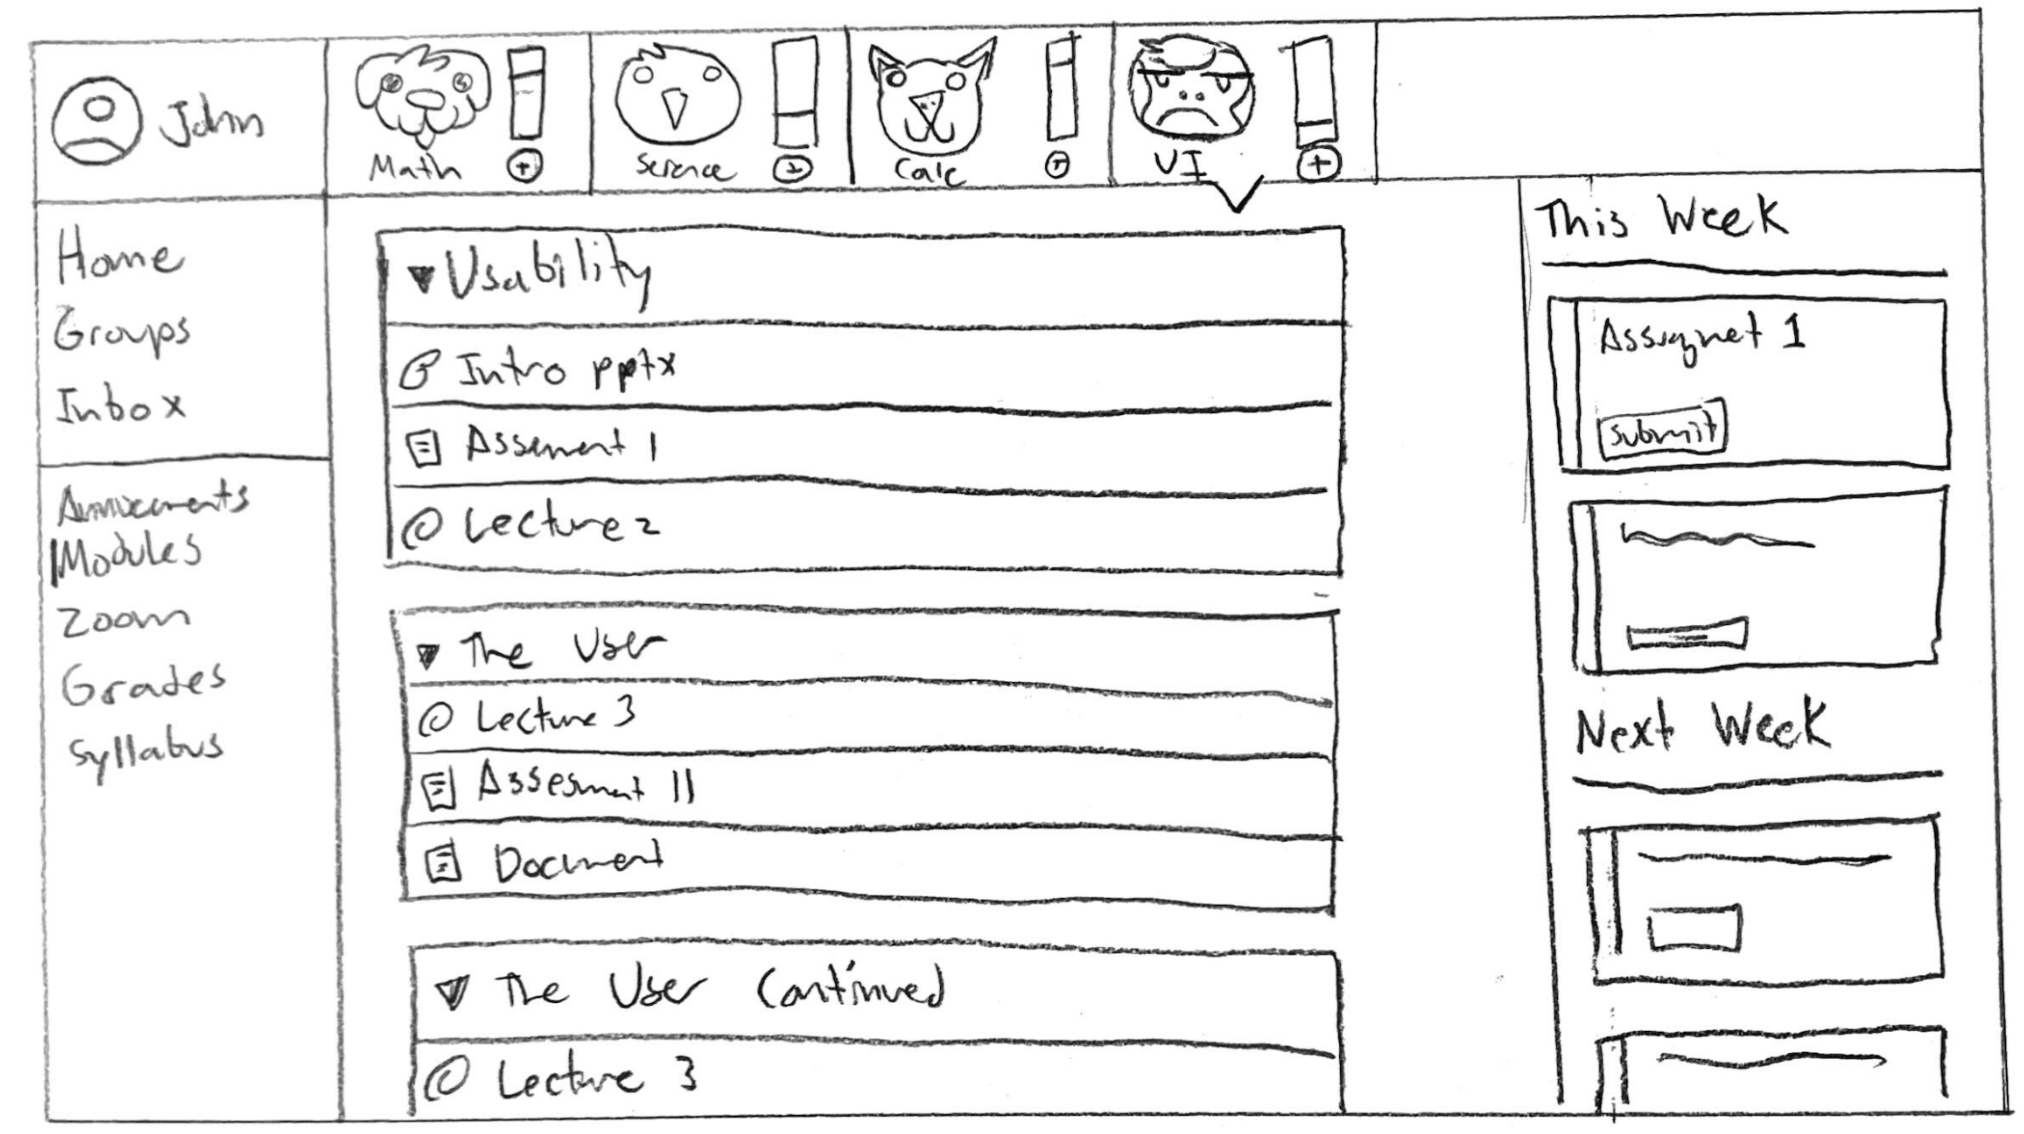 John
Math
Science
Calc
UI
Home
Groups
Inbox
Modules
Zoom
Grades
Syllabus
Usability
Intro pptx
Assement 1
Lecture 2
The User
Lecture 3
Assesment II
Document
The User Continued
Lecture 3
This Week
Assignet 1
Submit
Next Week